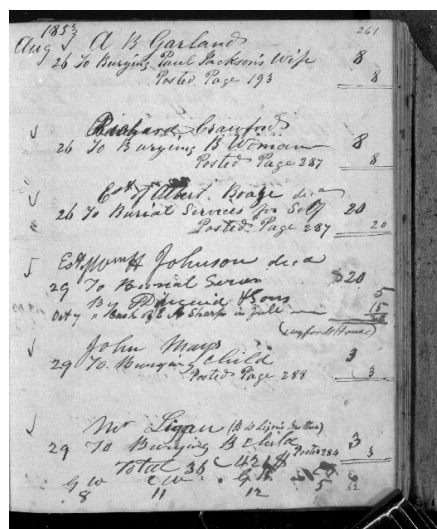 1853 261
Aug A B Garland
26 To Burying Paul Jackson's Wife 8
Posted Page 193 8
Richard Crawford
26 To Burying B Woman 8
Posted Page 287 8
Est of Albert Boage dec
26 To Burial Services for Self 20
Posted Page 287 20
Est Wm H Johnson decd
29 To Burial Serves $20
By Diuguid & Sons 5
Oct 7 " Cash of E A Sharp in full 15
20
John Mays
29 To Burying Child 3
Posted Page 288 3
Mr Ligan
29 To Burying B Child 3
Posted 284 3
Total 36
G W C W G
8 11 12